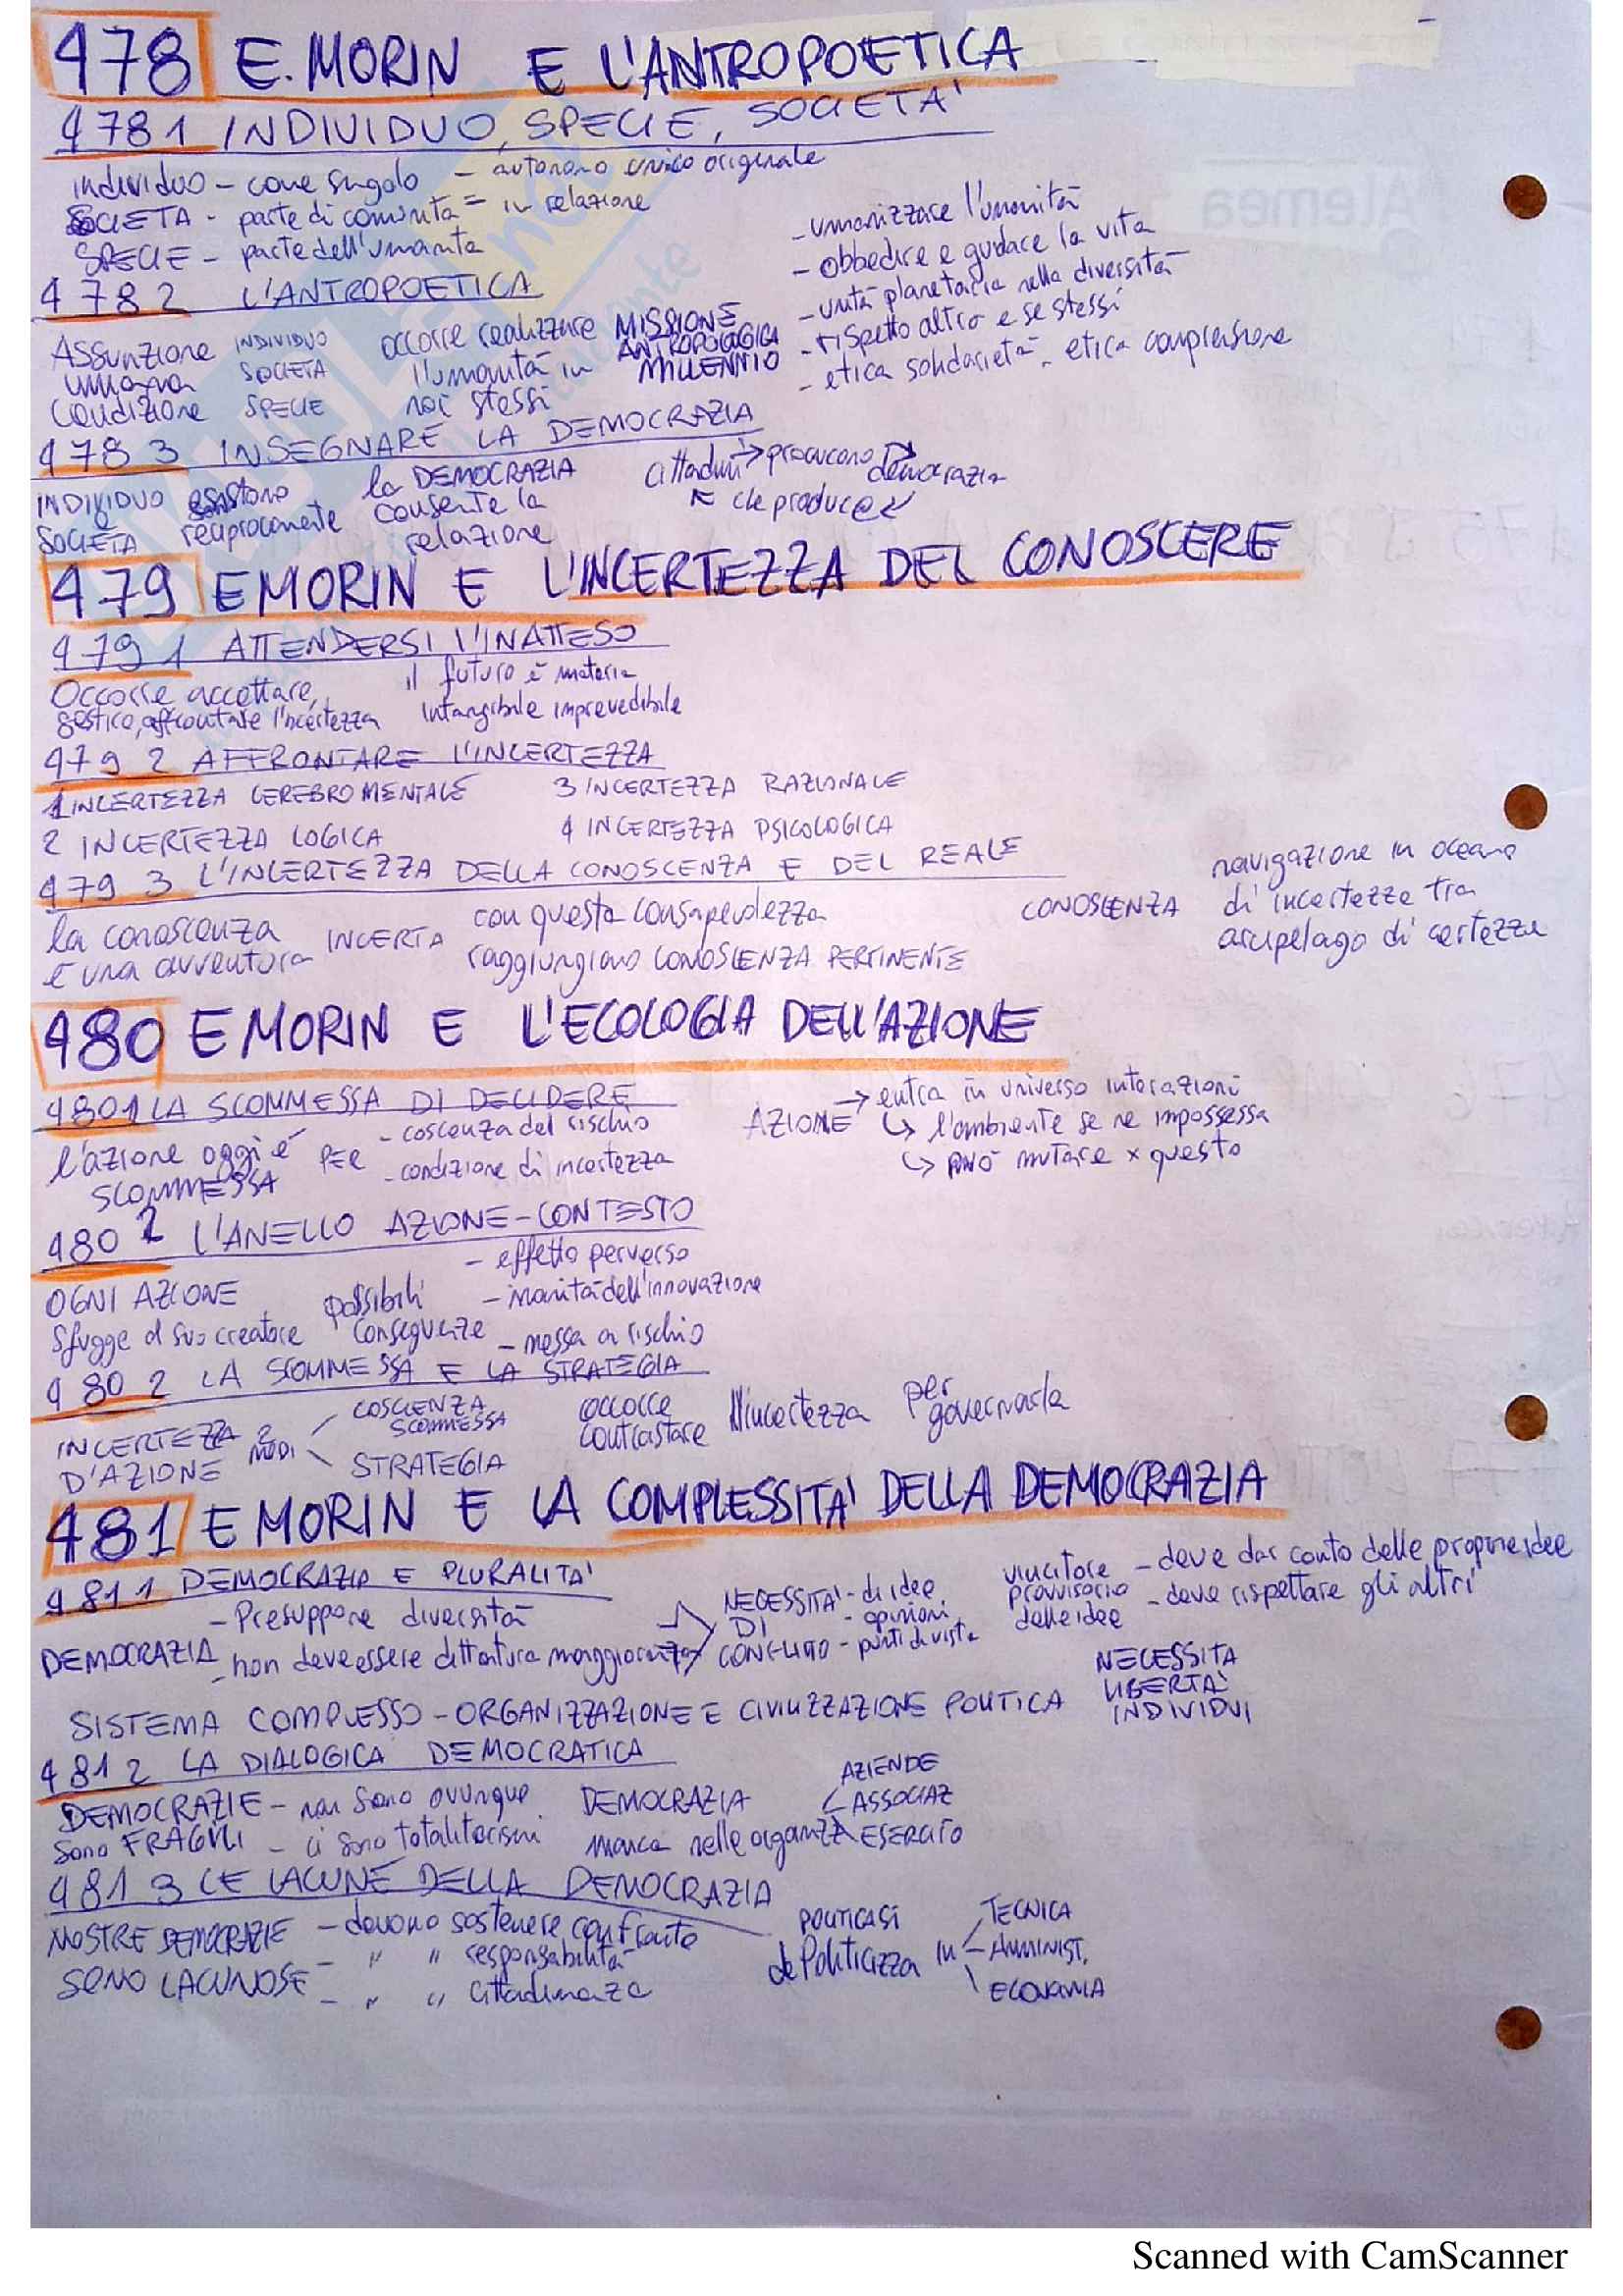 478 E. MORIN E L'ANTROPOETICA
478 1 INDIVIDUO, SPECIE, SOCIETA'
individuo - come singolo - autonomo unico originale
SOCIETA - parte di comunità - in relazione
SPECIE - parte dell'umanità
478 2 L'ANTROPOETICA
Assunzione umana condizione
INDIVIDUO
SOCIETA
SPECIE
occorre realizzare l'umanità in noi stessi
MISSIONE ANTROPOLOGICA MILLENNIO
- umanizzare l'umanità
- obbedire e guidare la vita
- unità planetaria nella diversità
- rispetto altro e se stessi
- etica solidarietà - etica comprensione
478 3 INSEGNARE LA DEMOCRAZIA
INDIVIDUO E SOCIETA
esistono reciprocamente
la DEMOCRAZIA consente la relazione
cittadini → producono democrazia
che produce
479 E MORIN E L'INCERTEZZA DEL CONOSCERE
479 1 ATTENDERSI L'INATTESO
Occorre accettare, gestire, affrontare l'incertezza
il futuro è materia intangibile imprevedibile
479 2 AFFRONTARE L'INCERTEZZA
1 INCERTEZZA CEREBROMENTALE
3 INCERTEZZA RAZIONALE
2 INCERTEZZA LOGICA
4 INCERTEZZA PSICOLOGICA
479 3 L'INCERTEZZA DELLA CONOSCENZA E DEL REALE
la conoscenza è una avventura INCERTA
con questa consapevolezza
raggiungiamo CONOSCENZA PERTINENTE
CONOSCENZA
navigazione in oceano
di incertezze tra
arcipelago di certezze
480 E MORIN E L'ECOLOGIA DELL'AZIONE
480 1 LA SCOMMESSA DI DECIDERE
l'azione oggi è SCOMMESSA PER
- coscienza del rischio
- condizione di incertezza
AZIONE
→ entra in universo interazioni
↳ l'ambiente se ne impossessa
↳ può mutare x questo
480 2 L'ANELLO AZIONE-CONTESTO
OGNI AZIONE
sfugge al suo creatore
possibili conseguenze
- effetto perverso
- inanità dell'innovazione
- messa a rischio
480 2 LA SCOMMESSA E LA STRATEGIA
INCERTEZZA D'AZIONE
2 MODI
COSCIENZA SCOMMESSA
STRATEGIA
occorre contrastare l'incertezza per governarla
481 E MORIN E LA COMPLESSITA' DELLA DEMOCRAZIA
481 1 DEMOCRAZIA E PLURALITA'
DEMOCRAZIA
- Presuppone diversità
- non deve essere dittatura maggioranza
NECESSITA' DI CONFLITTO
- di idee
- opinioni
- punti di vista
vincitore provvisorio delle idee
- deve dar conto delle proprie idee
- deve rispettare gli altri
SISTEMA COMPLESSO - ORGANIZZAZIONE E CIVILIZZAZIONE POLITICA
NECESSITA LIBERTA' INDIVIDUI
481 2 LA DIALOGICA DEMOCRATICA
DEMOCRAZIE - non sono ovunque
sono FRAGILI - ci sono totalitarismi
DEMOCRAZIA
manca nelle organizz
AZIENDE
ASSOCIAZ
ESERCITO
481 3 LE LACUNE DELLA DEMOCRAZIA
NOSTRE DEMOCRAZIE - devono sostenere confronto
SONO LACUNOSE - " " responsabilità
- " " cittadinanza
POLITICA SI dePoliticizza in
TECNICA
AMMINIST.
ECONOMIA
Scanned with CamScanner